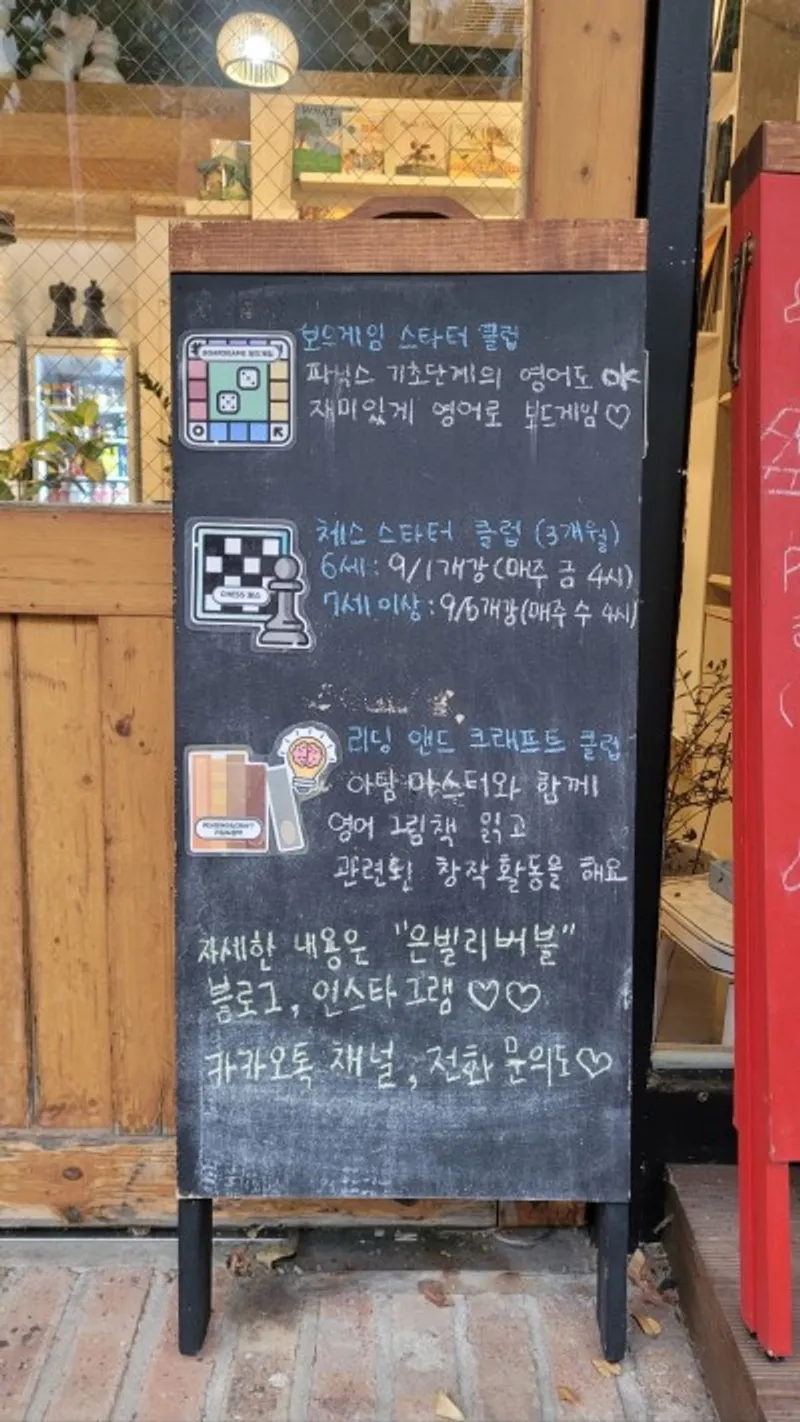 보드게임 스타터 클럽
파닉스 기초단계의 영어도 OK
재미있게 영어로 보드게임♡
체스 스타터 클럽 (3개월)
6세 : 9/1개강(매주 금 4시)
7세 이상 : 9/6개강(매주 수 4시)
CHESS 체스
리딩 앤드 크래프트 클럽
아텀 마스터와 함께
영어 그림책 읽고
관련된 창작 활동을 해요
자세한 내용은 "은빌리버블"
블로그, 인스타그램 ♡♡
카카오톡 채널, 전화 문의도♡